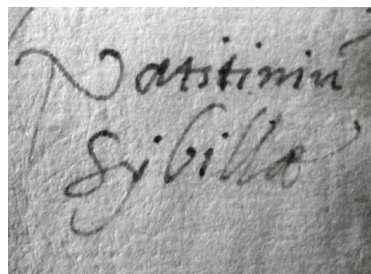 Vatitiniū
Sybillæ